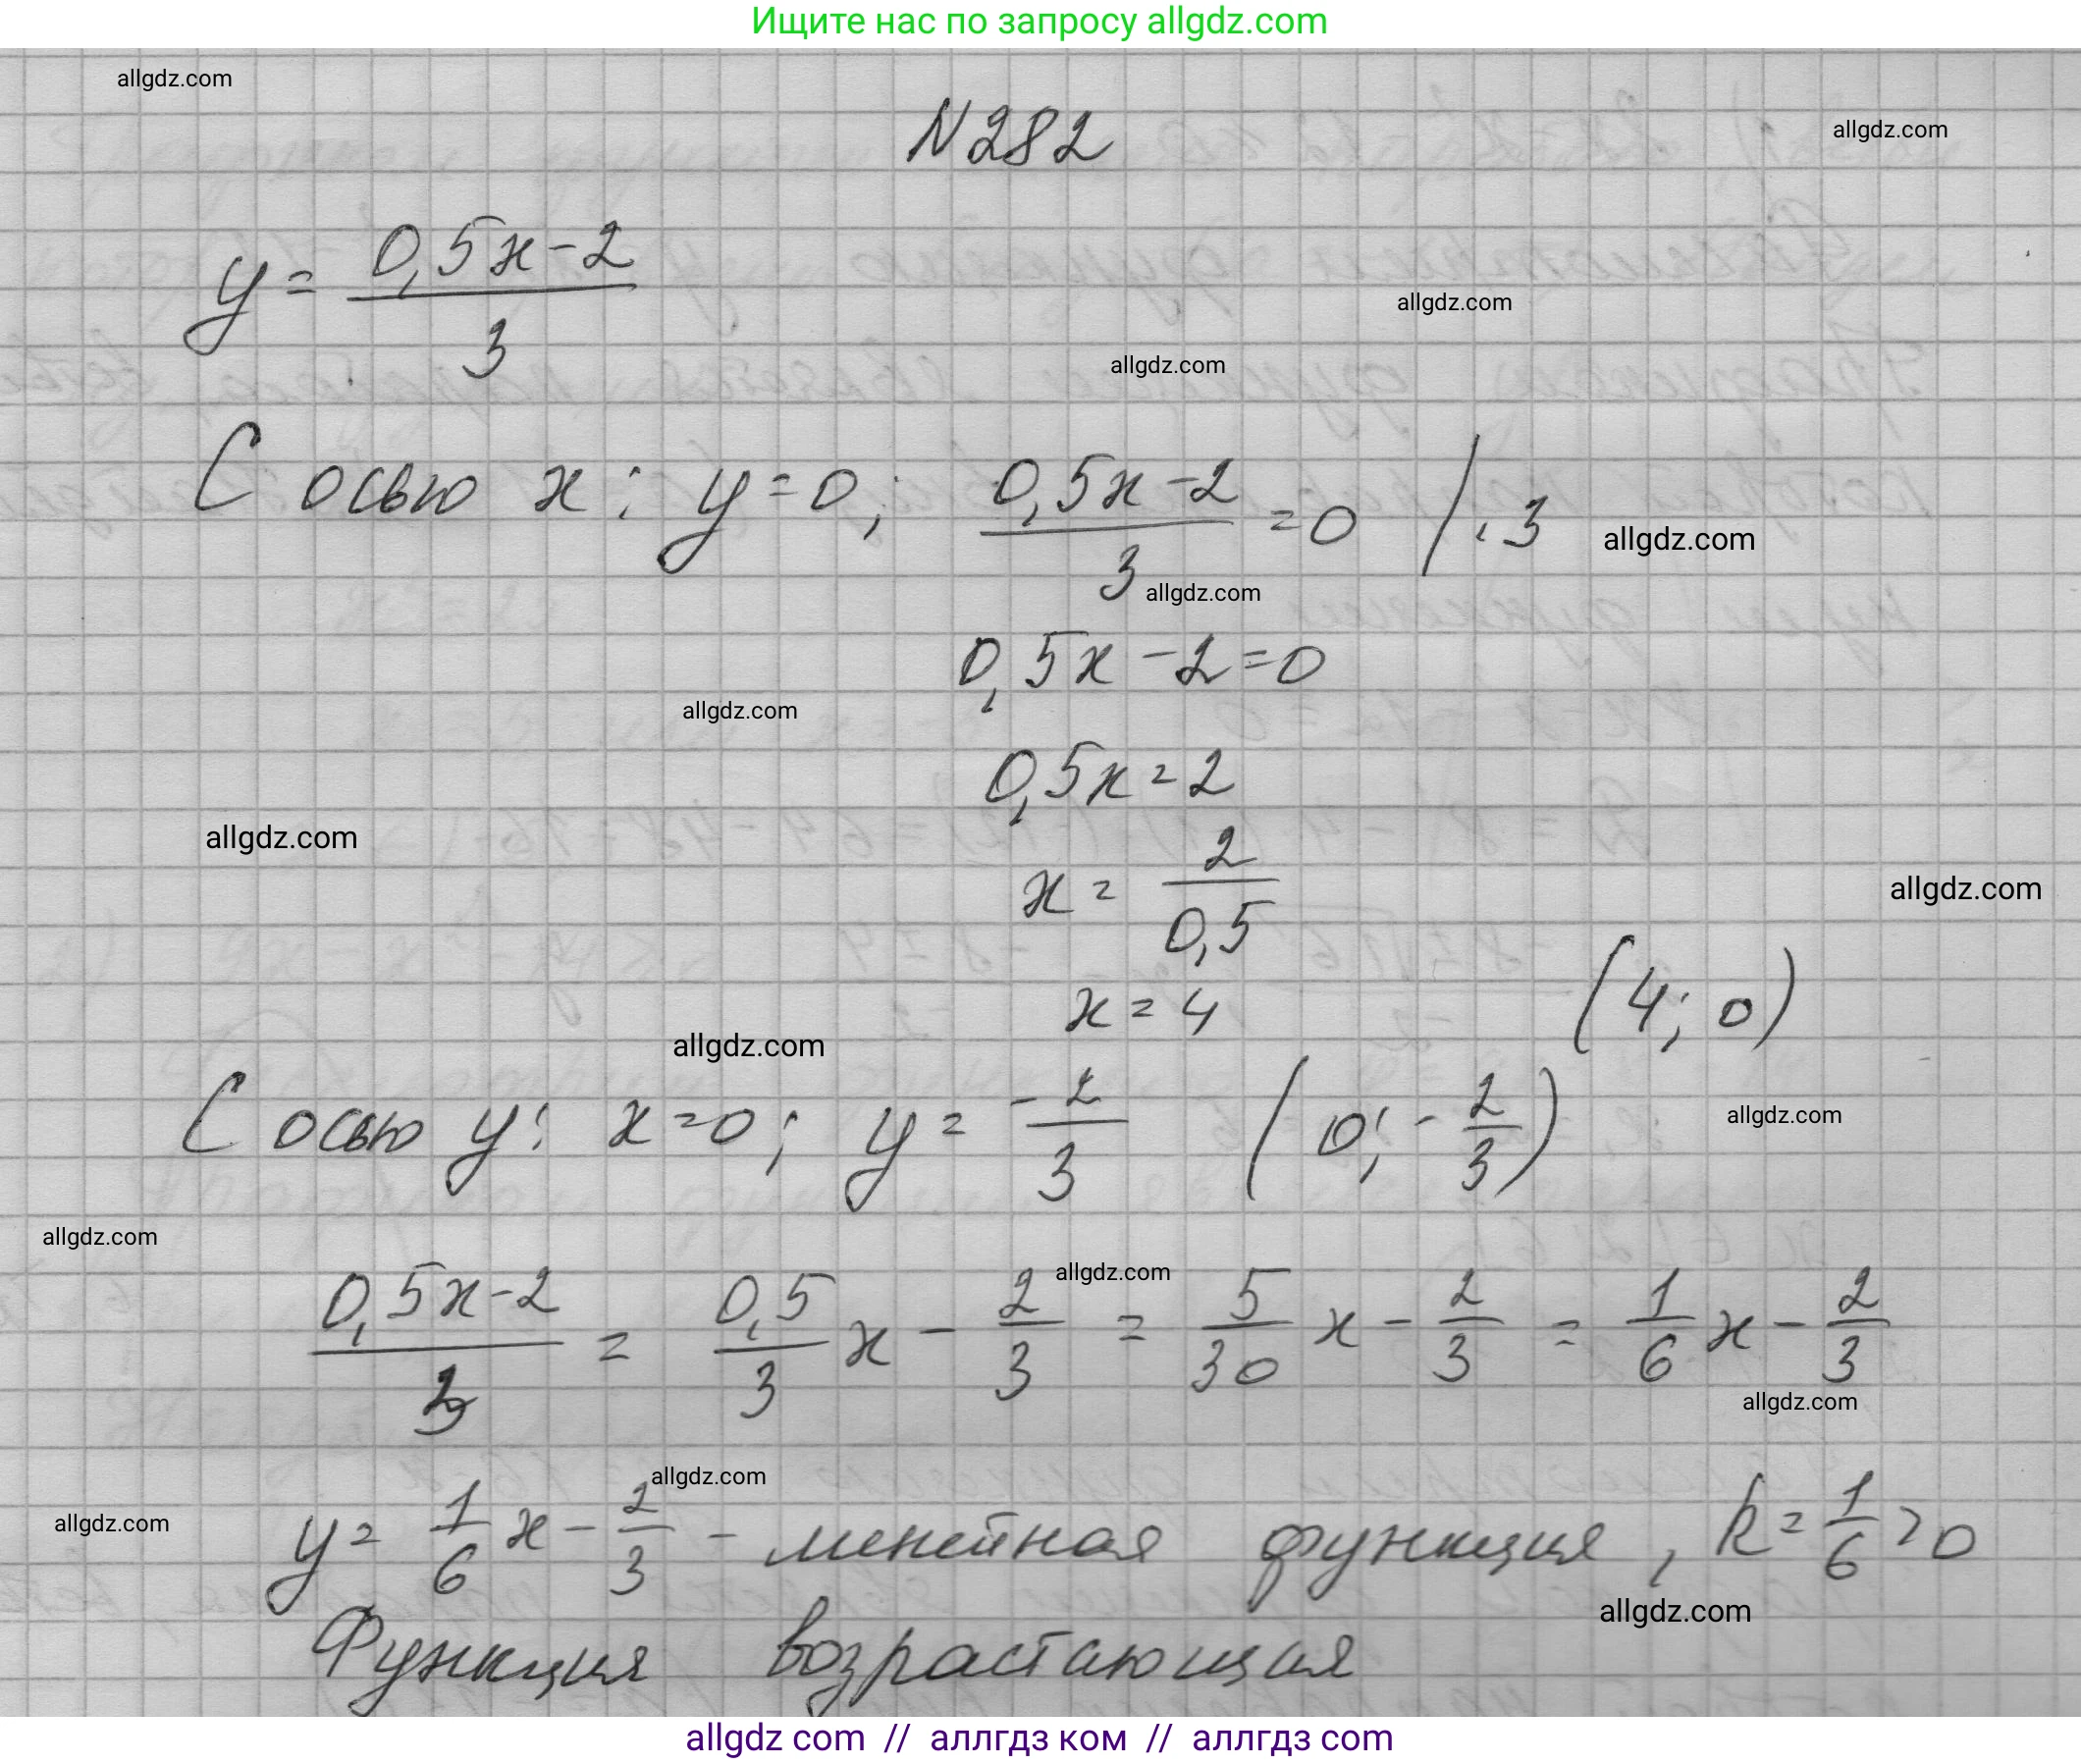 Ищите нас по запросу allgdz.com
allgdz.com
N282
allgdz.com
y = \frac{0,5x-2}{3}
allgdz.com
allgdz.com
С осью x: y=0; \frac{0,5x-2}{3} =0 /·3
allgdz.com
allgdz.com
0,5x-2=0
allgdz.com
0,5x=2
allgdz.com
x = \frac{2}{0,5}
allgdz.com
x = 4 (4; 0)
allgdz.com
С осью y: x=0; y = \frac{-2}{3} (0; -\frac{2}{3})
allgdz.com
allgdz.com
allgdz.com
\frac{0,5x-2}{3} = \frac{0,5}{3}x - \frac{2}{3} = \frac{5}{30}x - \frac{2}{3} = \frac{1}{6}x - \frac{2}{3}
allgdz.com
allgdz.com
allgdz.com
y = \frac{1}{6}x - \frac{2}{3} - линейная функция, k = \frac{1}{6} >0
allgdz.com
Функция возрастающая
allgdz com // аллгдз ком // аллгдз com